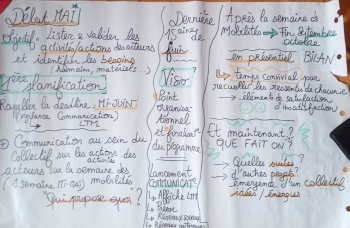 Début MAI
Objectif: Lister & valider les
activités/actions des acteurs
et identifier les besoins
(humains, matériels...)
1ère planification
Rappeler la deadline: Mi-JUIN
(Vigilance Communication)
LTM
⊕ Communication au sein du
Collectif sur les actions des
acteurs sur la semaine des
mobilités
"Qui propose quoi?"
Dernière
15aine de
juin
Visio
Point
organisa-
tionnel
et finalisat°
du programme
Lancement
COMMUNICAT°
↳ Affiche LTM
↳ Presse
↳ Réseaux sociaux
↳ Réseaux partenaires
Après la semaine des
Mobilités → Fin septembre
octobre
en présentiel BILAN
↳ temps convivial pour
recueillir les ressentis de chacun·e
→ éléments de satisfaction
d'insatisfaction
Et maintenant?
QUE FAIT ON?
↳ Quelles suites?
→ d'autres projets?
émergence d'un collectif
idées/énergies